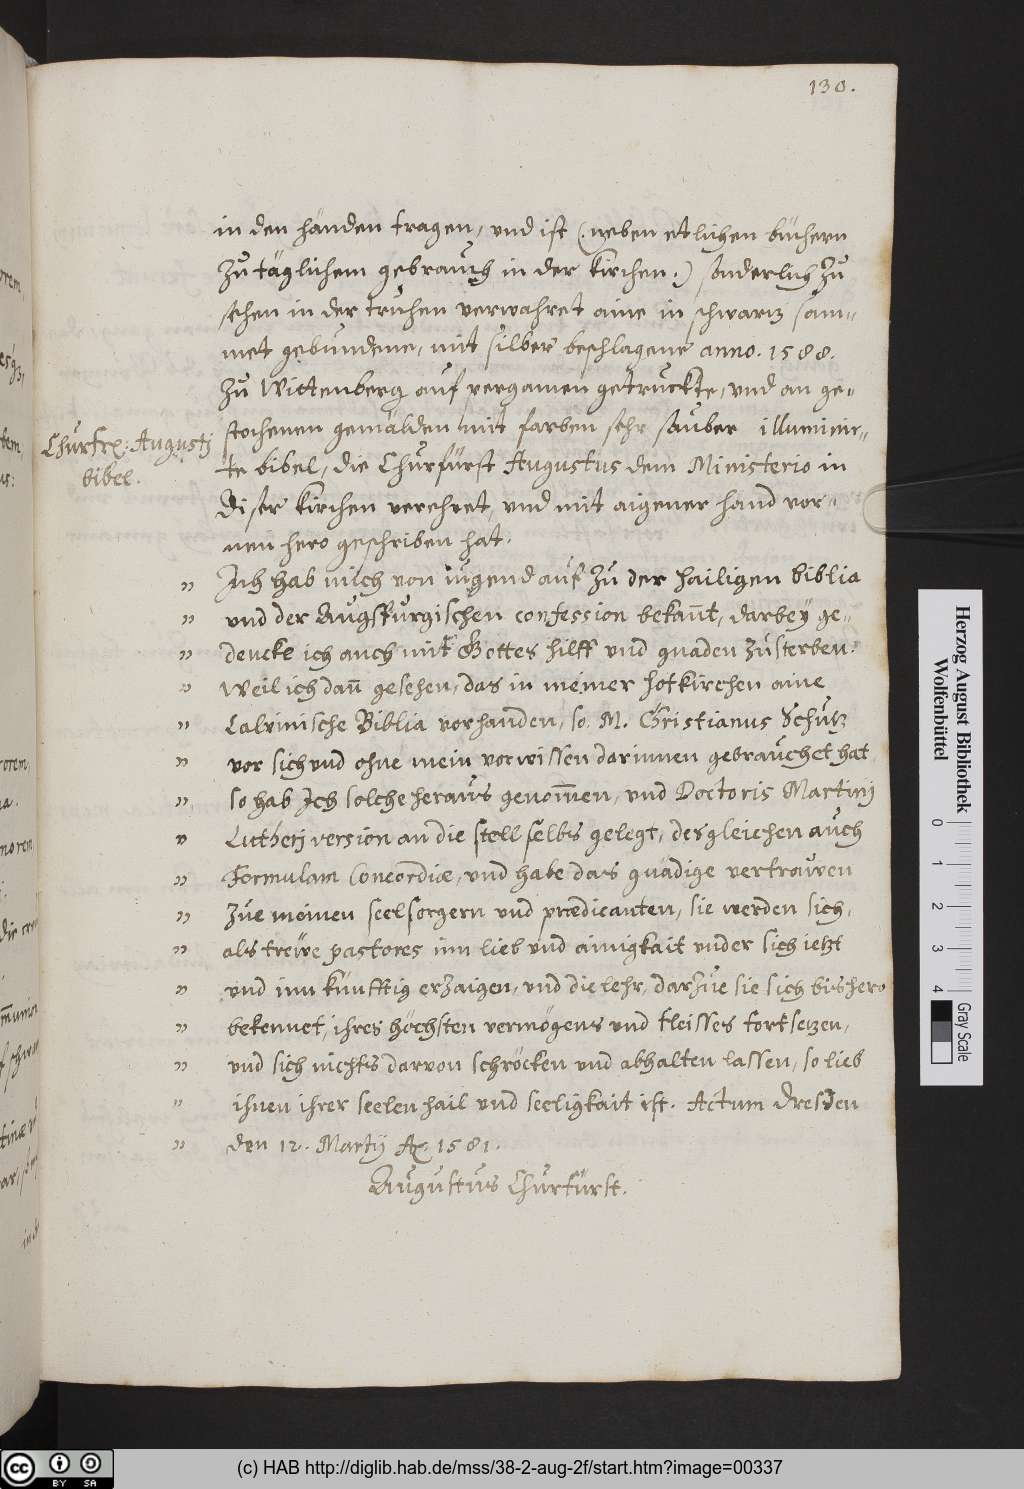 130.
in den händen tragen, und ist (: neben etlichen büchern
Zu täglichem gebrauch in der kirchen :) sonderlich zu
sehen in der truhen verwahret aine in schwartz sam=
met gebundene, mit silber beschlagene anno. 1588.
Zu Wittenberg auf pergamen getruckte, und an ge=
stochenen gemälden mit farben sehr sauber illuminir=
Churfr: Augustj
bibel.
te bibel, die Churfürst Augustus dem Ministerio in
diser kirchen verehret, und mit aigener hand vor=
nen hero geschriben hat.
" Ich hab mich von iugend auf zu der hailigen biblia
" und der Augspurgischen confession bekañt, darbeÿ ge=
" dencke ich auch mit Gottes hilff und gnaden zu sterben.
" Weil ich dañ gesehen, das in meiner hofkirchen aine
" Calvinische Biblia vorhanden, so M. Christianus Schütz
" vor sich und ohne mein vorwissen darinnen gebrauchet hat,
" so hab Ich solche heraus genom̃en, und Doctoris Martinj
" Lutherj version an die stell selbs gelegt, desgleichen auch
" Formulam Concordiæ, und habe das gnädige vertrawen
" Zue meinen seelsorgern und prædicanten, sie werden sich,
" als trewe pastores inn lieb und ainigkait under sich ietzt
" und inn künfftig erzaigen, und die lehr, darzue sie sich bishero
" bekennet, ihres höchsten vermögens und fleisses fortsetzen,
" und sich nichts darvon schröcken und abhalten lassen, so lieb
" ihnen ihrer seelen hail und seeligkait ist. Actum Dresden
" den 12. Martij Aº. 1581.
Augustus Churfürst.
Herzog August Bibliothek
Wolfenbüttel
0 1 2 3 4
Gray Scale
cc BY SA
(c) HAB http://diglib.hab.de/mss/38-2-aug-2f/start.htm?image=00337